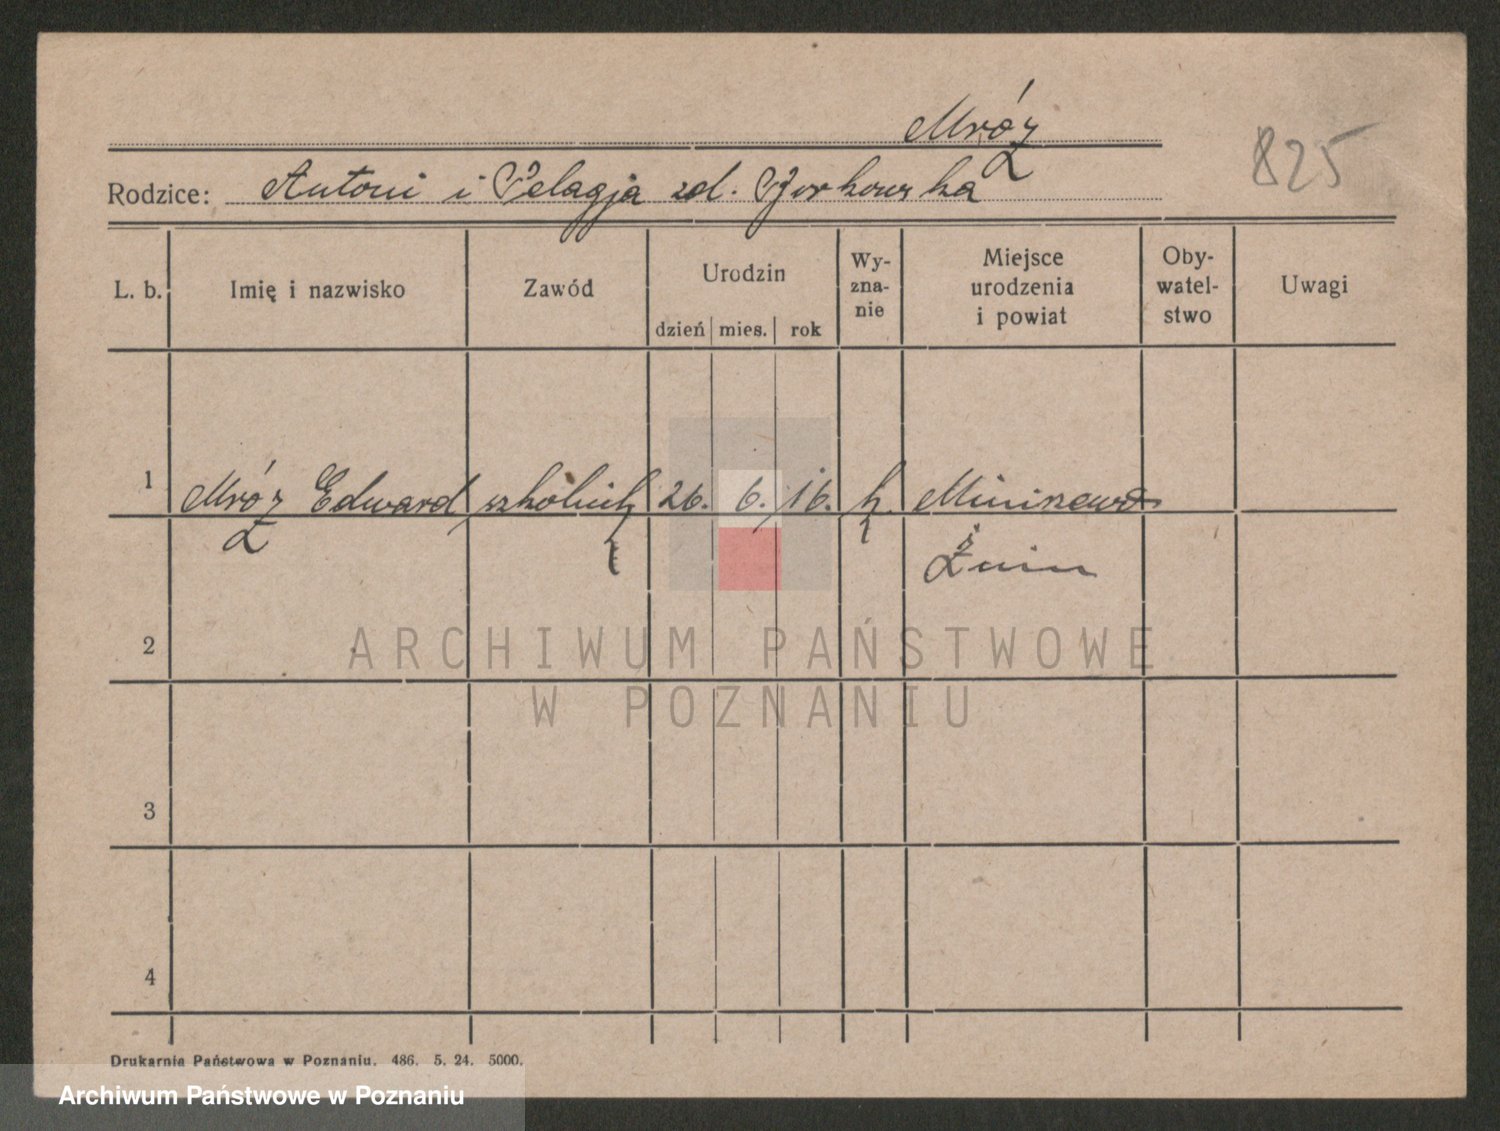 Mróz
825
Rodzice: Antoni i Pelagja zd.
L. b. Imię i nazwisko Zawód Urodzin dzień mies. rok Wy-zna-nie Miejsce urodzenia i powiat Oby-watel-stwo Uwagi
1 Mróz Edward 26. 6. 16. k.
Żnin
2
3
4
ARCHIWUM PAŃSTWOWE
W POZNANIU
Drukarnia Państwowa w Poznaniu. 486. 5. 24. 5000.
Archiwum Państwowe w Poznaniu